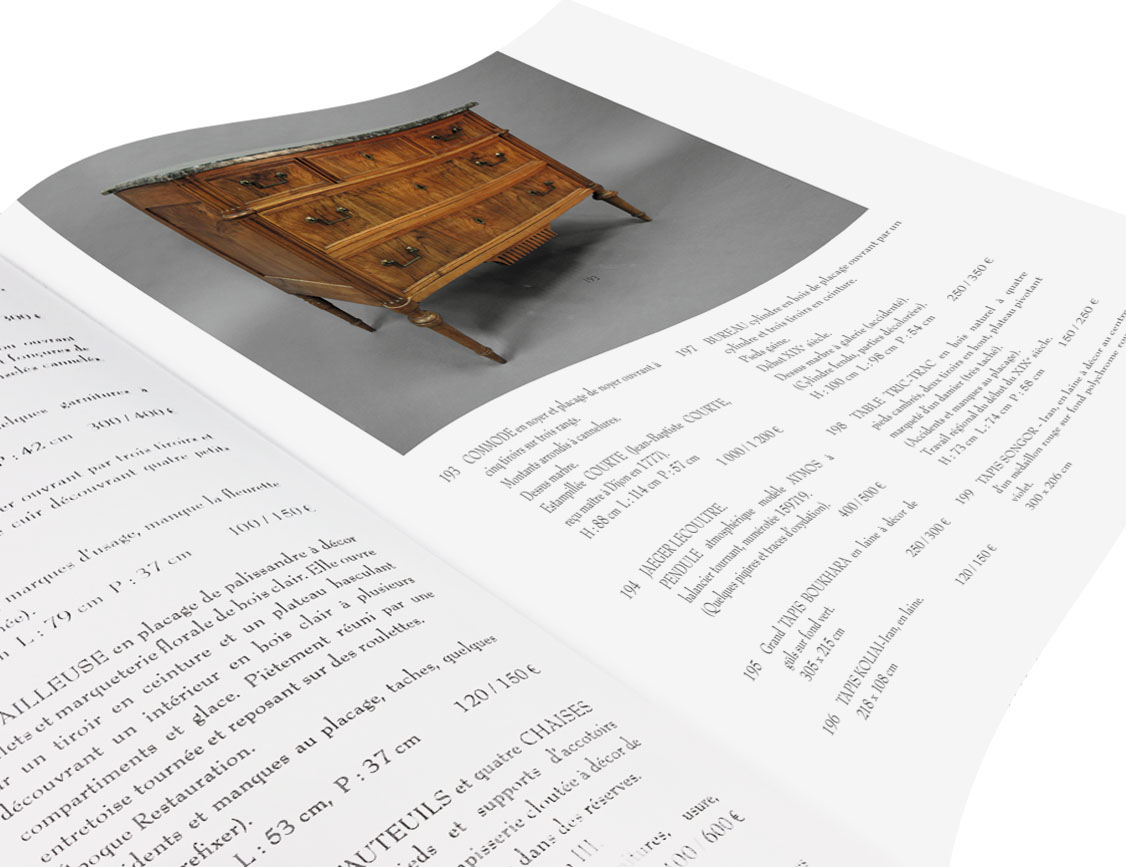 300 €
ouvrant
quelques garnitures à
P. 42 cm 300 / 400 €
er ouvrant par trois tiroirs et
cuir découvrant quatre petits
marques d'usage, manque la fleurette
L : 79 cm P : 37 cm 100 / 150 €
AILLEUSE en placage de palissandre à décor
et marqueterie florale de bois clair. Elle ouvre
un tiroir en ceinture et un plateau basculant
découvrant un intérieur en bois clair à plusieurs
compartiments et glace. Piètement réuni par une
entretoise tournée et reposant sur des roulettes.
époque Restauration.
et manques au placage, taches, quelques
L : 53 cm, P : 37 cm 120 / 150 €
AUTEUILS et quatre CHAISES
et supports d'accotoirs
cloutée à décor de
dans des réserves.
usure,
600 €
193
193 COMMODE en noyer et placage de noyer ouvrant à
cinq tiroirs sur trois rangs.
Montants arrondis à cannelures.
Dessus marbre.
Estampillée COURTE (Jean-Baptiste COURTE,
reçu maître à Dijon en 1777).
H : 88 cm L : 114 cm P : 57 cm
1 000 / 1 200 €
194 JAEGER LECOULTRE.
PENDULE atmosphérique modèle ATMOS à
balancier tournant, numérotée 159719.
(Quelques piqûres et traces d'oxydation).
400 / 500 €
195 Grand TAPIS BOUKHARA en laine à décor de
güls sur fond vert.
305 x 215 cm
250 / 300 €
196 TAPIS KOLIAI-Iran, en laine.
218 x 108 cm
120 / 150 €
197 BUREAU cylindre en bois de placage ouvrant par un
cylindre et trois tiroirs en ceinture.
Pieds gaine.
Début XIXe siècle.
Dessus marbre à galerie (accidenté).
(Cylindre fendu, parties décolorées).
H : 100 cm L : 98 cm P : 54 cm
250 / 350 €
198 TABLE TRIC-TRAC en bois naturel à quatre
pieds cambrés, deux tiroirs en bout, plateau pivotant
marqueté d'un damier (très taché).
(Accidents et manques au placage).
Travail régional du début du XIXe siècle.
H : 73 cm L : 74 cm P : 58 cm
150 / 250 €
199 TAPIS SONGOR - Iran, en laine à décor au centre
d'un médaillon rouge sur fond polychrome
violet.
300 x 206 cm